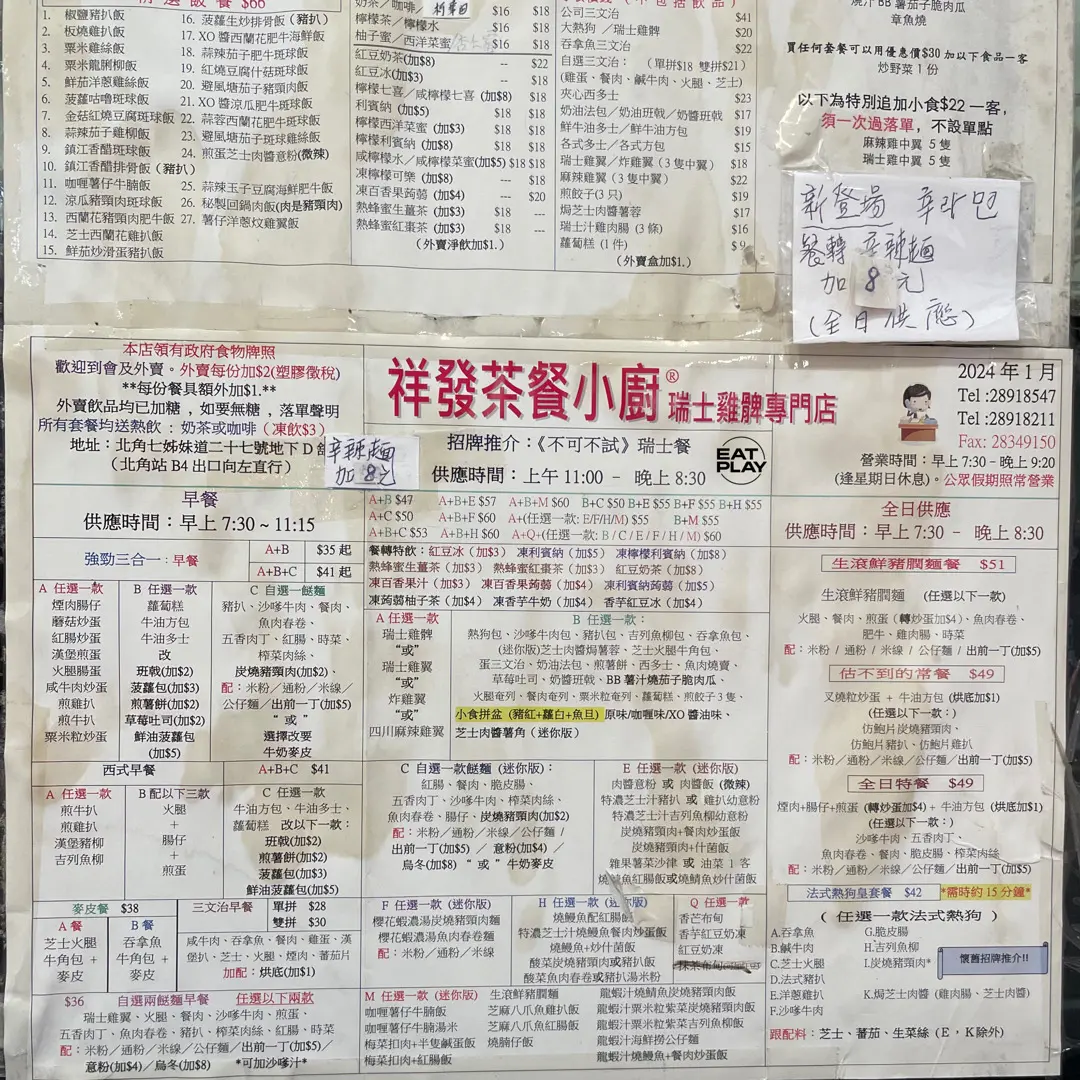 精選飯餐 $66
1. 椒鹽豬扒飯
2. 板燒雞扒飯
3. 粟米雞絲飯
4. 粟米龍脷柳飯
5. 鮮茄洋蔥雞絲飯
6. 菠蘿咕嚕斑球飯
7. 金菇紅燒豆腐斑球飯
8. 蒜辣茄子雞柳飯
9. 鎮江香醋斑球飯
10. 鎮江香醋排骨飯（豬扒）
11. 咖喱薯仔牛腩飯
12. 涼瓜豬頸肉斑球飯
13. 西蘭花豬頸肉肥牛飯
14. 芝士西蘭花雞扒飯
15. 鮮茄炒滑蛋豬扒飯
16. 菠蘿生炒排骨飯（豬扒）
17. XO 醬西蘭花肥牛海鮮飯
18. 蒜辣茄子肥牛斑球飯
19. 紅燒豆腐什菇斑球飯
20. 避風塘茄子豬頸肉飯
21. XO 醬涼瓜肥牛斑球飯
22. 蒜蓉西蘭花肥牛斑球飯
23. 避風塘茄子斑球雞絲飯
24. 煎蛋芝士肉醬意粉(微辣)
25. 蒜辣玉子豆腐海鮮肥牛飯
26. 秘製回鍋肉飯(肉是豬頸肉)
27. 薯仔洋蔥炆雞翼飯
奶茶／咖啡／ $16 $18
檸檬茶／檸檬水 $16 $18
柚子蜜／西洋菜蜜 $16 $18
紅豆奶茶(加$8) --- $22
紅豆冰(加$3) --- $18
檸檬七喜／咸檸檬七喜 (加$8) $18
利賓納 (加$5) $18 $18
檸檬西洋菜蜜 (加$3) $18 $18
檸檬利賓納 (加$8) $18 $18
咸檸檬水／咸檸檬菜蜜(加$5) $18 $18
凍檸檬可樂 (加$8) --- $18
凍百香果蒟蒻 (加$4) --- $20
熱蜂蜜生薑茶 (加$3) $18 ---
熱蜂蜜紅棗茶 (加$3) $18 ---
(外賣淨飲加$1.)
公司三文治 $41
大熱狗／瑞士雞髀 $20
吞拿魚三文治 $22
自選三文治： (單拼$18 雙拼$21)
(雞蛋、餐肉、鹹牛肉、火腿、芝士)
夾心西多士 $23
奶油法包／奶油班戟／奶醬班戟 $17
鮮牛油多士／鮮牛油方包 $19
各式多士／各式方包 $15
瑞士雞翼／炸雞翼（3 隻中翼） $18
麻辣雞翼（3 隻中翼） $22
煎餃子(3 只) $19
焗芝士肉醬薯蓉 $17
瑞士汁雞肉腸（3 條） $16
蘿蔔糕（1 件） $ 9
(外賣盒加$1.)
燒汁 BB 薯茄子脆肉瓜
章魚燒
買任何套餐可以用優惠價$30 加以下食品一客
炒野菜 1 份
以下為特別追加小食$22 一客，
須一次過落單，不設單點
麻辣雞中翼 5 隻
瑞士雞中翼 5 隻
新登場 辛라면
餐轉辛辣麵
加 8 元
(全日供應)
本店領有政府食物牌照
歡迎到會及外賣。外賣每份加$2(塑膠徵稅)
**每份餐具額外加$1.**
外賣飲品均已加糖，如要無糖，落單聲明
所有套餐均送熱飲：奶茶或咖啡（凍飲$3）
地址：北角七姊妹道二十七號地下 D
（北角站 B4 出口向左直行）
辛辣麵
加 8元
祥發茶餐小廚® 瑞士雞髀專門店
招牌推介：《不可不試》瑞士餐
供應時間：上午 11:00 - 晚上 8:30
EAT PLAY
2024 年 1 月
Tel :28918547
Tel :28918211
Fax: 28349150
營業時間：早上 7:30 - 晚上 9:20
(逢星期日休息)。公眾假期照常營業
早餐
供應時間：早上 7:30 ~ 11:15
強勁三合一：早餐
A+B $35 起
A+B+C $41 起
A 任選一款
煙肉腸仔
蘑菇炒蛋
紅腸炒蛋
漢堡煎蛋
火腿腸蛋
咸牛肉炒蛋
煎雞扒
煎牛扒
粟米粒炒蛋
B 任選一款
蘿蔔糕
牛油方包
牛油多士
改
班戟(加$2)
菠蘿包(加$3)
煎薯餅(加$2)
草莓吐司(加$2)
鮮油菠蘿包
(加$5)
C 自選一餸麵
豬扒、沙嗲牛肉、餐肉、
魚肉春卷、
五香肉丁、紅腸、時菜、
榨菜肉絲、
炭燒豬頸肉(加$2)、
配：米粉／通粉／米線／
公仔麵／出前一丁(加$5)
“ 或 ”
選擇改要
牛奶麥皮
西式早餐
A+B+C $41
A 任選一款
煎牛扒
煎雞扒
漢堡豬柳
吉列魚柳
B 配以下三款
火腿
+
腸仔
+
煎蛋
C 任選一款
牛油方包、牛油多士、
蘿蔔糕 改以下一款：
班戟(加$2)
煎薯餅(加$2)
菠蘿包(加$3)
鮮油菠蘿包(加$5)
麥皮餐 $38
A 餐
芝士火腿
牛角包 +
麥皮
B 餐
吞拿魚
牛角包 +
麥皮
三文治早餐
單拼 $28
雙拼 $30
咸牛肉、吞拿魚、餐肉、雞蛋、漢
堡扒、芝士、火腿、煙肉、蕃茄片
加配：烘底(加$1)
$36 自選兩餸麵早餐 任選以下兩款
瑞士雞翼、火腿、餐肉、沙嗲牛肉、煎蛋、
五香肉丁、魚肉春卷、豬扒、榨菜肉絲、紅腸、時菜
配：米粉／通粉／米線／公仔麵／出前一丁(加$5)／
意粉(加$4)／烏冬(加$8) *可加沙嗲汁*
A+B $47 A+B+E $57 A+B+M $60 B+C $50 B+E $55 B+F $55 B+H $55
A+C $50 A+B+F $60 A+(任選一款: E/F/H/M) $55 B+M $55
A+B+C $53 A+B+H $60 A+Q+(任選一款: B / C / E / F / H / M) $60
餐轉特飲：紅豆冰（加$3） 凍利賓納（加$5） 凍檸檬利賓納（加$8）
熱蜂蜜生薑茶（加$3） 熱蜂蜜紅棗茶（加$3） 紅豆奶茶（加$8）
凍百香果汁（加$3） 凍百香果蒟蒻（加$4） 凍利賓納蒟蒻（加$5）
凍蒟蒻柚子茶（加$4） 凍香芋牛奶（加$4） 香芋紅豆冰（加$4）
A 任選一款
瑞士雞髀
“或”
瑞士雞翼
“或”
炸雞翼
“或”
四川麻辣雞翼
B 任選一款：
熱狗包、沙嗲牛肉包、豬扒包、吉列魚柳包、吞拿魚包、
(迷你版)芝士肉醬焗薯蓉、芝士火腿牛角包、
蛋三文治、奶油法包、煎薯餅、西多士、魚肉燒賣、
草莓吐司、奶醬班戟、BB 薯汁燒茄子脆肉瓜、
火腿奄列、餐肉奄列、粟米粒奄列、蘿蔔糕、煎餃子 3 隻、
小食拼盆（豬紅+蘿白+魚旦）原味/咖喱味/XO 醬油味、
芝士肉醬薯角（迷你版）
C 自選一款餸麵（迷你版）：
紅腸、餐肉、脆皮腸、
五香肉丁、沙嗲牛肉、榨菜肉絲、
魚肉春卷、腸仔、炭燒豬頸肉(加$2)
配：米粉／通粉／米線／公仔麵／
出前一丁(加$5)／意粉(加$4)／
烏冬(加$8) “ 或 ” 牛奶麥皮
E 任選一款（迷你版）
肉醬意粉 或 肉醬飯（微辣）
特濃芝士汁豬扒 或 雞扒幼意粉
特濃芝士汁吉列魚柳幼意粉
炭燒豬頸肉+餐肉炒蛋飯
炭燒豬頸肉+什菌飯
雜果薯菜沙律 或 油菜 1 客
燒鰻魚紅腸飯或燒鯖魚炒什菌飯
F 任選一款（迷你版）
櫻花蝦濃湯炭燒豬頸肉麵
櫻花蝦濃湯魚肉春卷麵
配：米粉／通粉／米線
H 任選一款（迷你版）
燒鰻魚配紅腸飯
特濃芝士汁燒鰻魚餐肉炒蛋飯
燒鰻魚+炒什菌飯
酸菜炭燒豬頸肉或豬扒飯
酸菜魚肉春卷或豬扒湯米粉
Q 任選一款
香芒布甸
香芋紅豆奶凍
紅豆奶凍
M 任選一款（迷你版）
咖喱薯仔牛腩飯
咖喱薯仔牛腩湯米
梅菜扣肉+半隻鹹蛋飯
梅菜扣肉+紅腸飯
生滾鮮豬膶麵
芝麻八爪魚雞扒飯
芝麻八爪魚紅腸飯
燒腩仔飯
龍蝦汁燒鯖魚炭燒豬頸肉飯
龍蝦汁粟米粒紫菜炭燒豬頸肉飯
龍蝦汁粟米粒紫菜吉列魚柳飯
龍蝦汁海鮮撈公仔麵
龍蝦汁燒鰻魚+餐肉炒蛋飯
全日供應
供應時間：早上 7:30 - 晚上 8:30
生滾鮮豬膶麵餐 $51
生滾鮮豬膶麵 （任選以下一款）
火腿、餐肉、煎蛋（轉炒蛋加$4）、魚肉春卷、
肥牛、雞肉腸、時菜
配：米粉 / 通粉 / 米線 / 公仔麵 / 出前一丁(加$5)
估不到的常餐 $49
叉燒粒炒蛋 + 牛油方包 (烘底加$1)
(任選以下一款：)
仿鮑片炭燒豬頸肉、
仿鮑片豬扒、仿鮑片雞扒
配：米粉／通粉／米線／公仔麵／出前一丁(加$5)
全日特餐 $49
煙肉+腸仔+煎蛋 (轉炒蛋加$4) + 牛油方包 (烘底加$1)
(任選以下一款：)
沙嗲牛肉、五香肉丁、
魚肉春卷、餐肉、脆皮腸、榨菜肉絲
配：米粉／通粉／米線／公仔麵／出前一丁(加$5)
法式熱狗皇套餐 $42 *需時約 15 分鐘*
( 任選一款法式熱狗 )
A.吞拿魚
B.鹹牛肉
C.芝士火腿
D.法式豬扒
E.洋蔥雞扒
F.沙嗲牛肉
G.脆皮腸
H.吉列魚柳
I.炭燒豬頸肉*
K.焗芝士肉醬（雞肉腸、芝士肉醬）
懷舊招牌推介!!
跟配料：芝士、蕃茄、生菜絲（E，K除外）